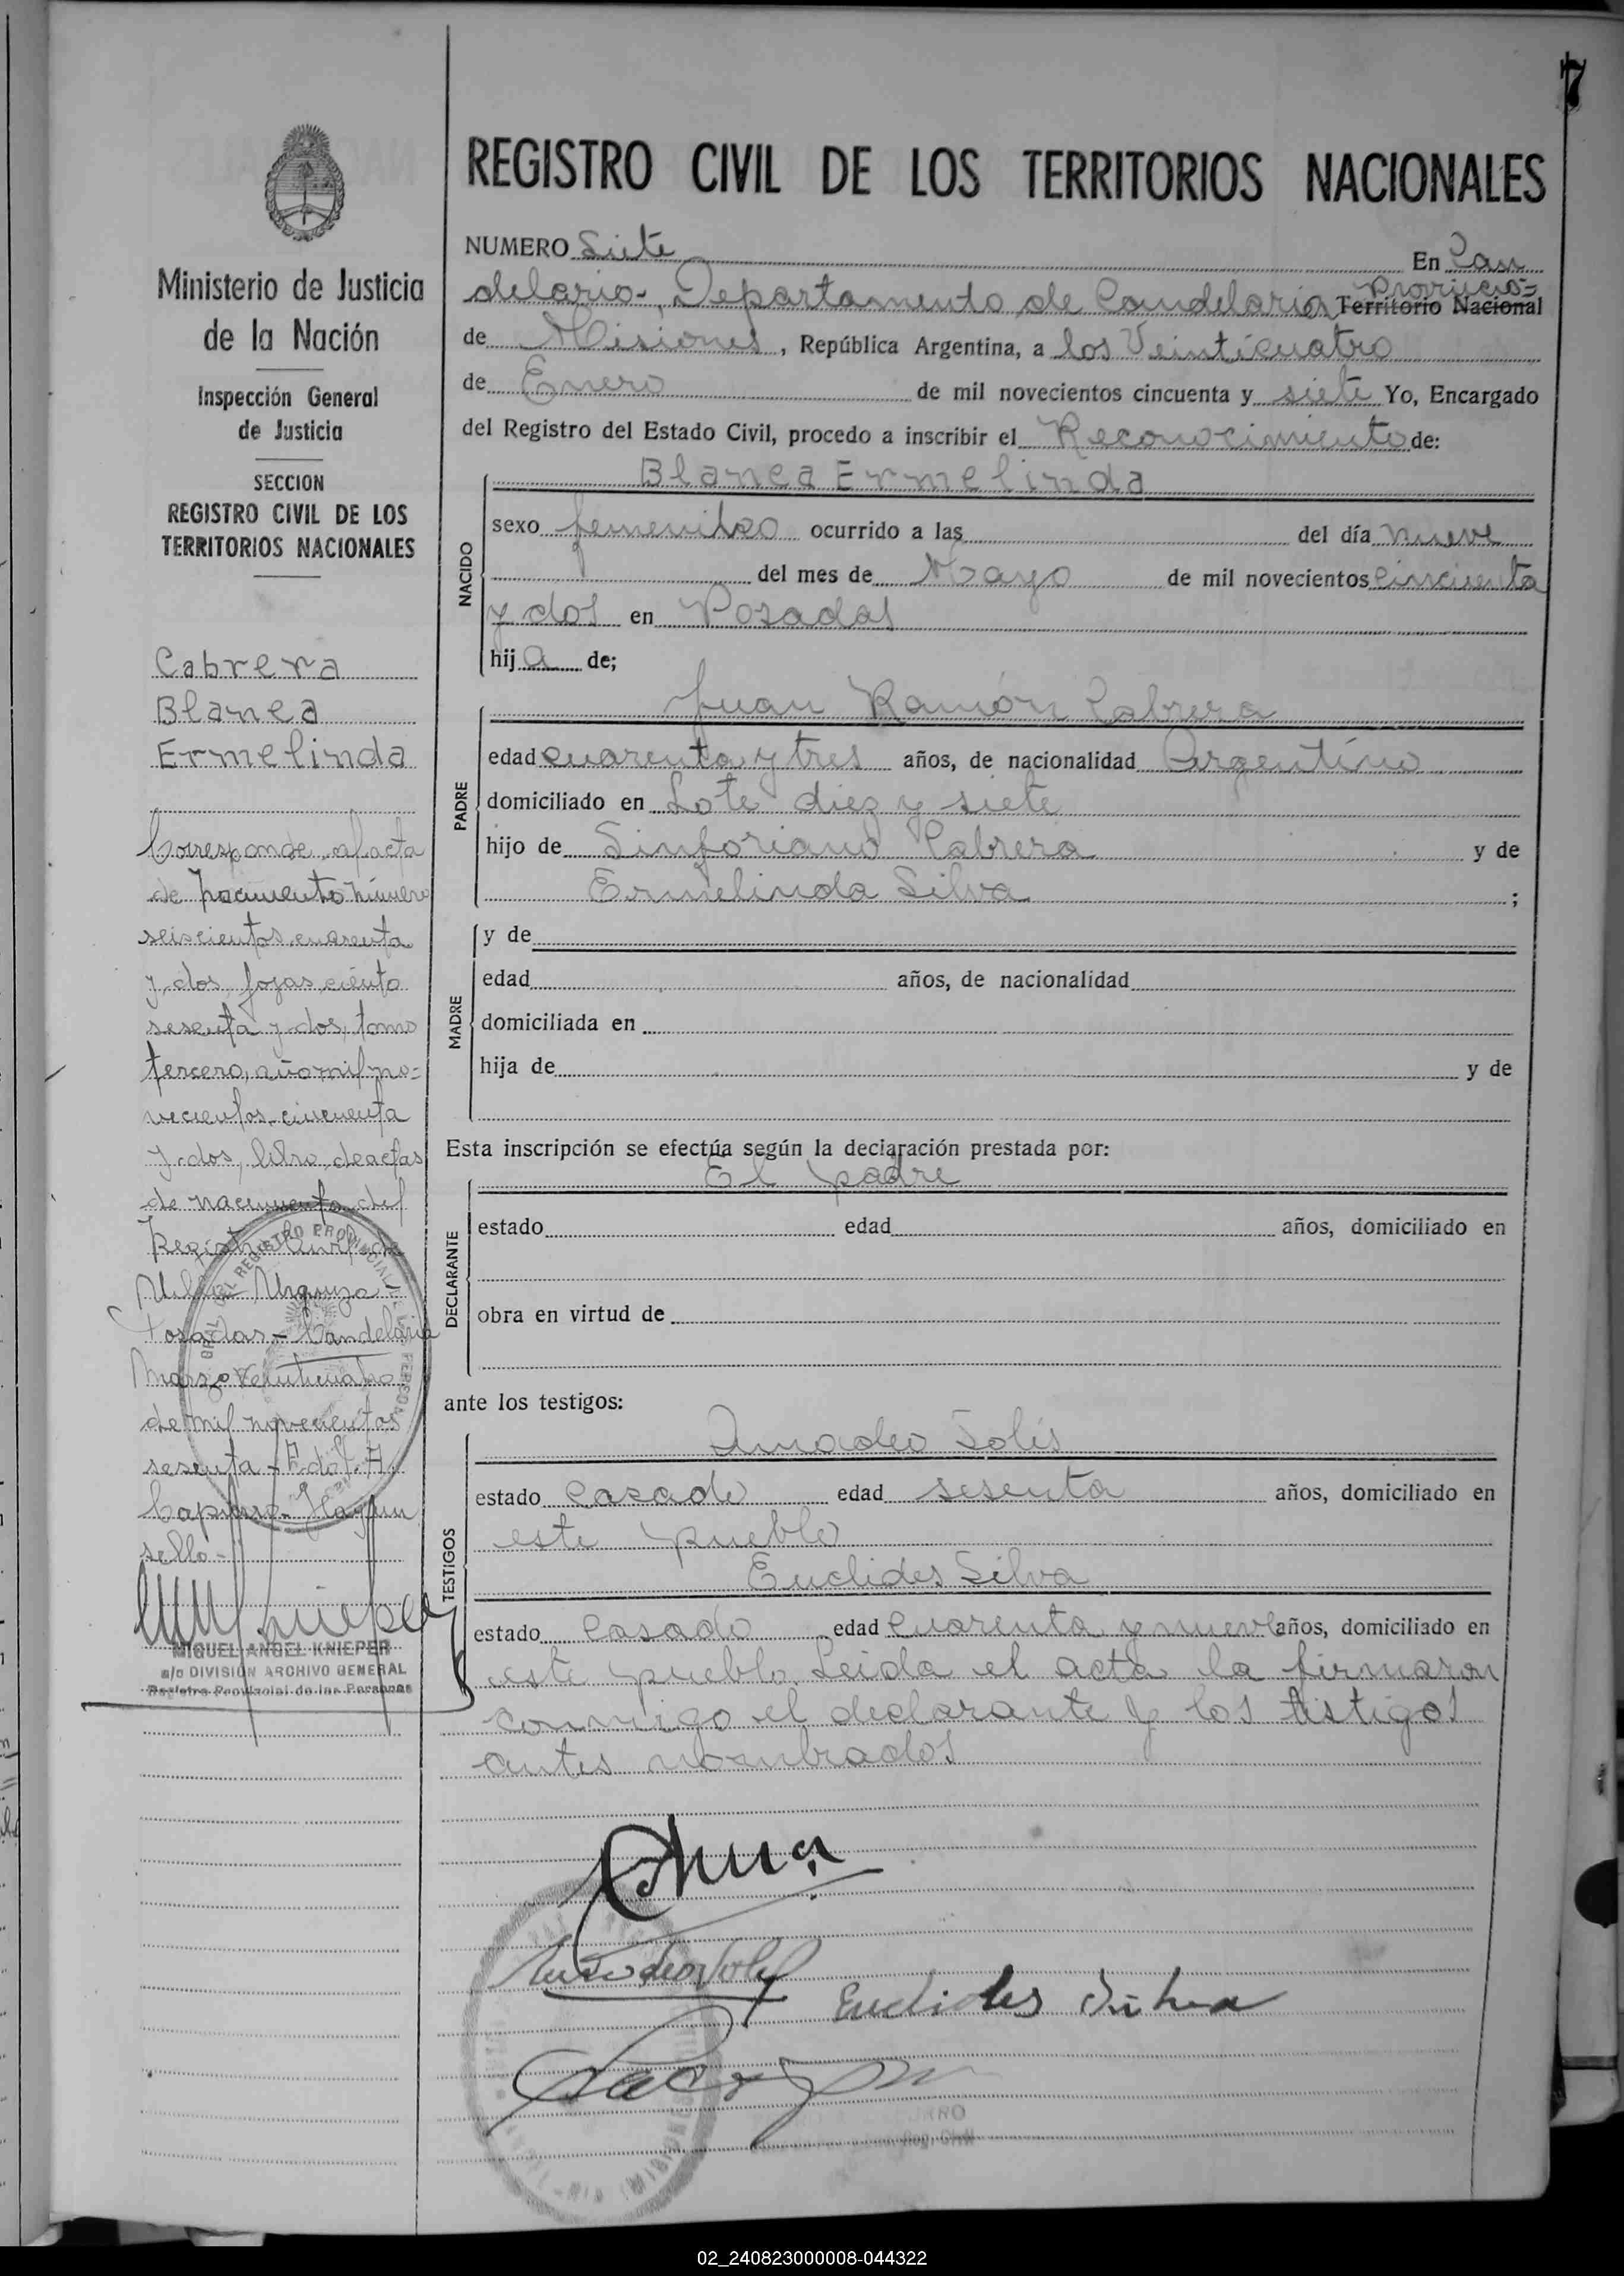 7
REGISTRO CIVIL DE LOS TERRITORIOS NACIONALES
Ministerio de Justicia
de la Nación
Inspección General
de Justicia
SECCION
REGISTRO CIVIL DE LOS
TERRITORIOS NACIONALES
Cabrera
Blanca
Ermelinda
Corresponde al acta
de nacimiento número
seiscientos cuarenta
y dos, fojas ciento
sesenta y dos, tomo
tercero, año mil no=
vecientos cincuenta
y dos, libro de actas
de nacimiento del
Registro Civil de
Villa Urquiza
Posadas - Candelaria
Marzo veinticuatro
de mil novecientos
sesenta - Adolf. A.
Hay un
sello -
MIGUEL ANGEL KNIEPER
a/c DIVISIÓN ARCHIVO GENERAL
Registro Provincial de las Personas
NUMERO Siete En Can
delaria-, Departamento de Candelaria Provincia= Territorio Nacional
de Misiones, República Argentina, a los Veinticuatro
de Enero de mil novecientos cincuenta y siete Yo, Encargado
del Registro del Estado Civil, procedo a inscribir el Reconocimiento de:
NACIDO
Blanca Ermelinda
sexo femenino ocurrido a las del día nueve
del mes de Mayo de mil novecientos cincuenta
y dos en Posadas
hija de;
PADRE
Juan Ramón Cabrera
edad cuarenta y tres años, de nacionalidad Argentino
domiciliado en Lote diez y siete
hijo de Sinforiano Cabrera y de
Ermelinda Silva ;
MADRE
y de
edad años, de nacionalidad
domiciliada en
hija de y de
Esta inscripción se efectúa según la declaración prestada por:
DECLARANTE
El padre
estado edad años, domiciliado en
obra en virtud de
ante los testigos:
TESTIGOS
Amadeo Solis
estado casado edad sesenta años, domiciliado en
este pueblo
Euclides Silva
estado casado edad cuarenta y nueve años, domiciliado en
este pueblo. Leida el acta la firmaron
conmigo el declarante y los testigos
antes nombrados
Euclides Silva
02_240823000008-044322